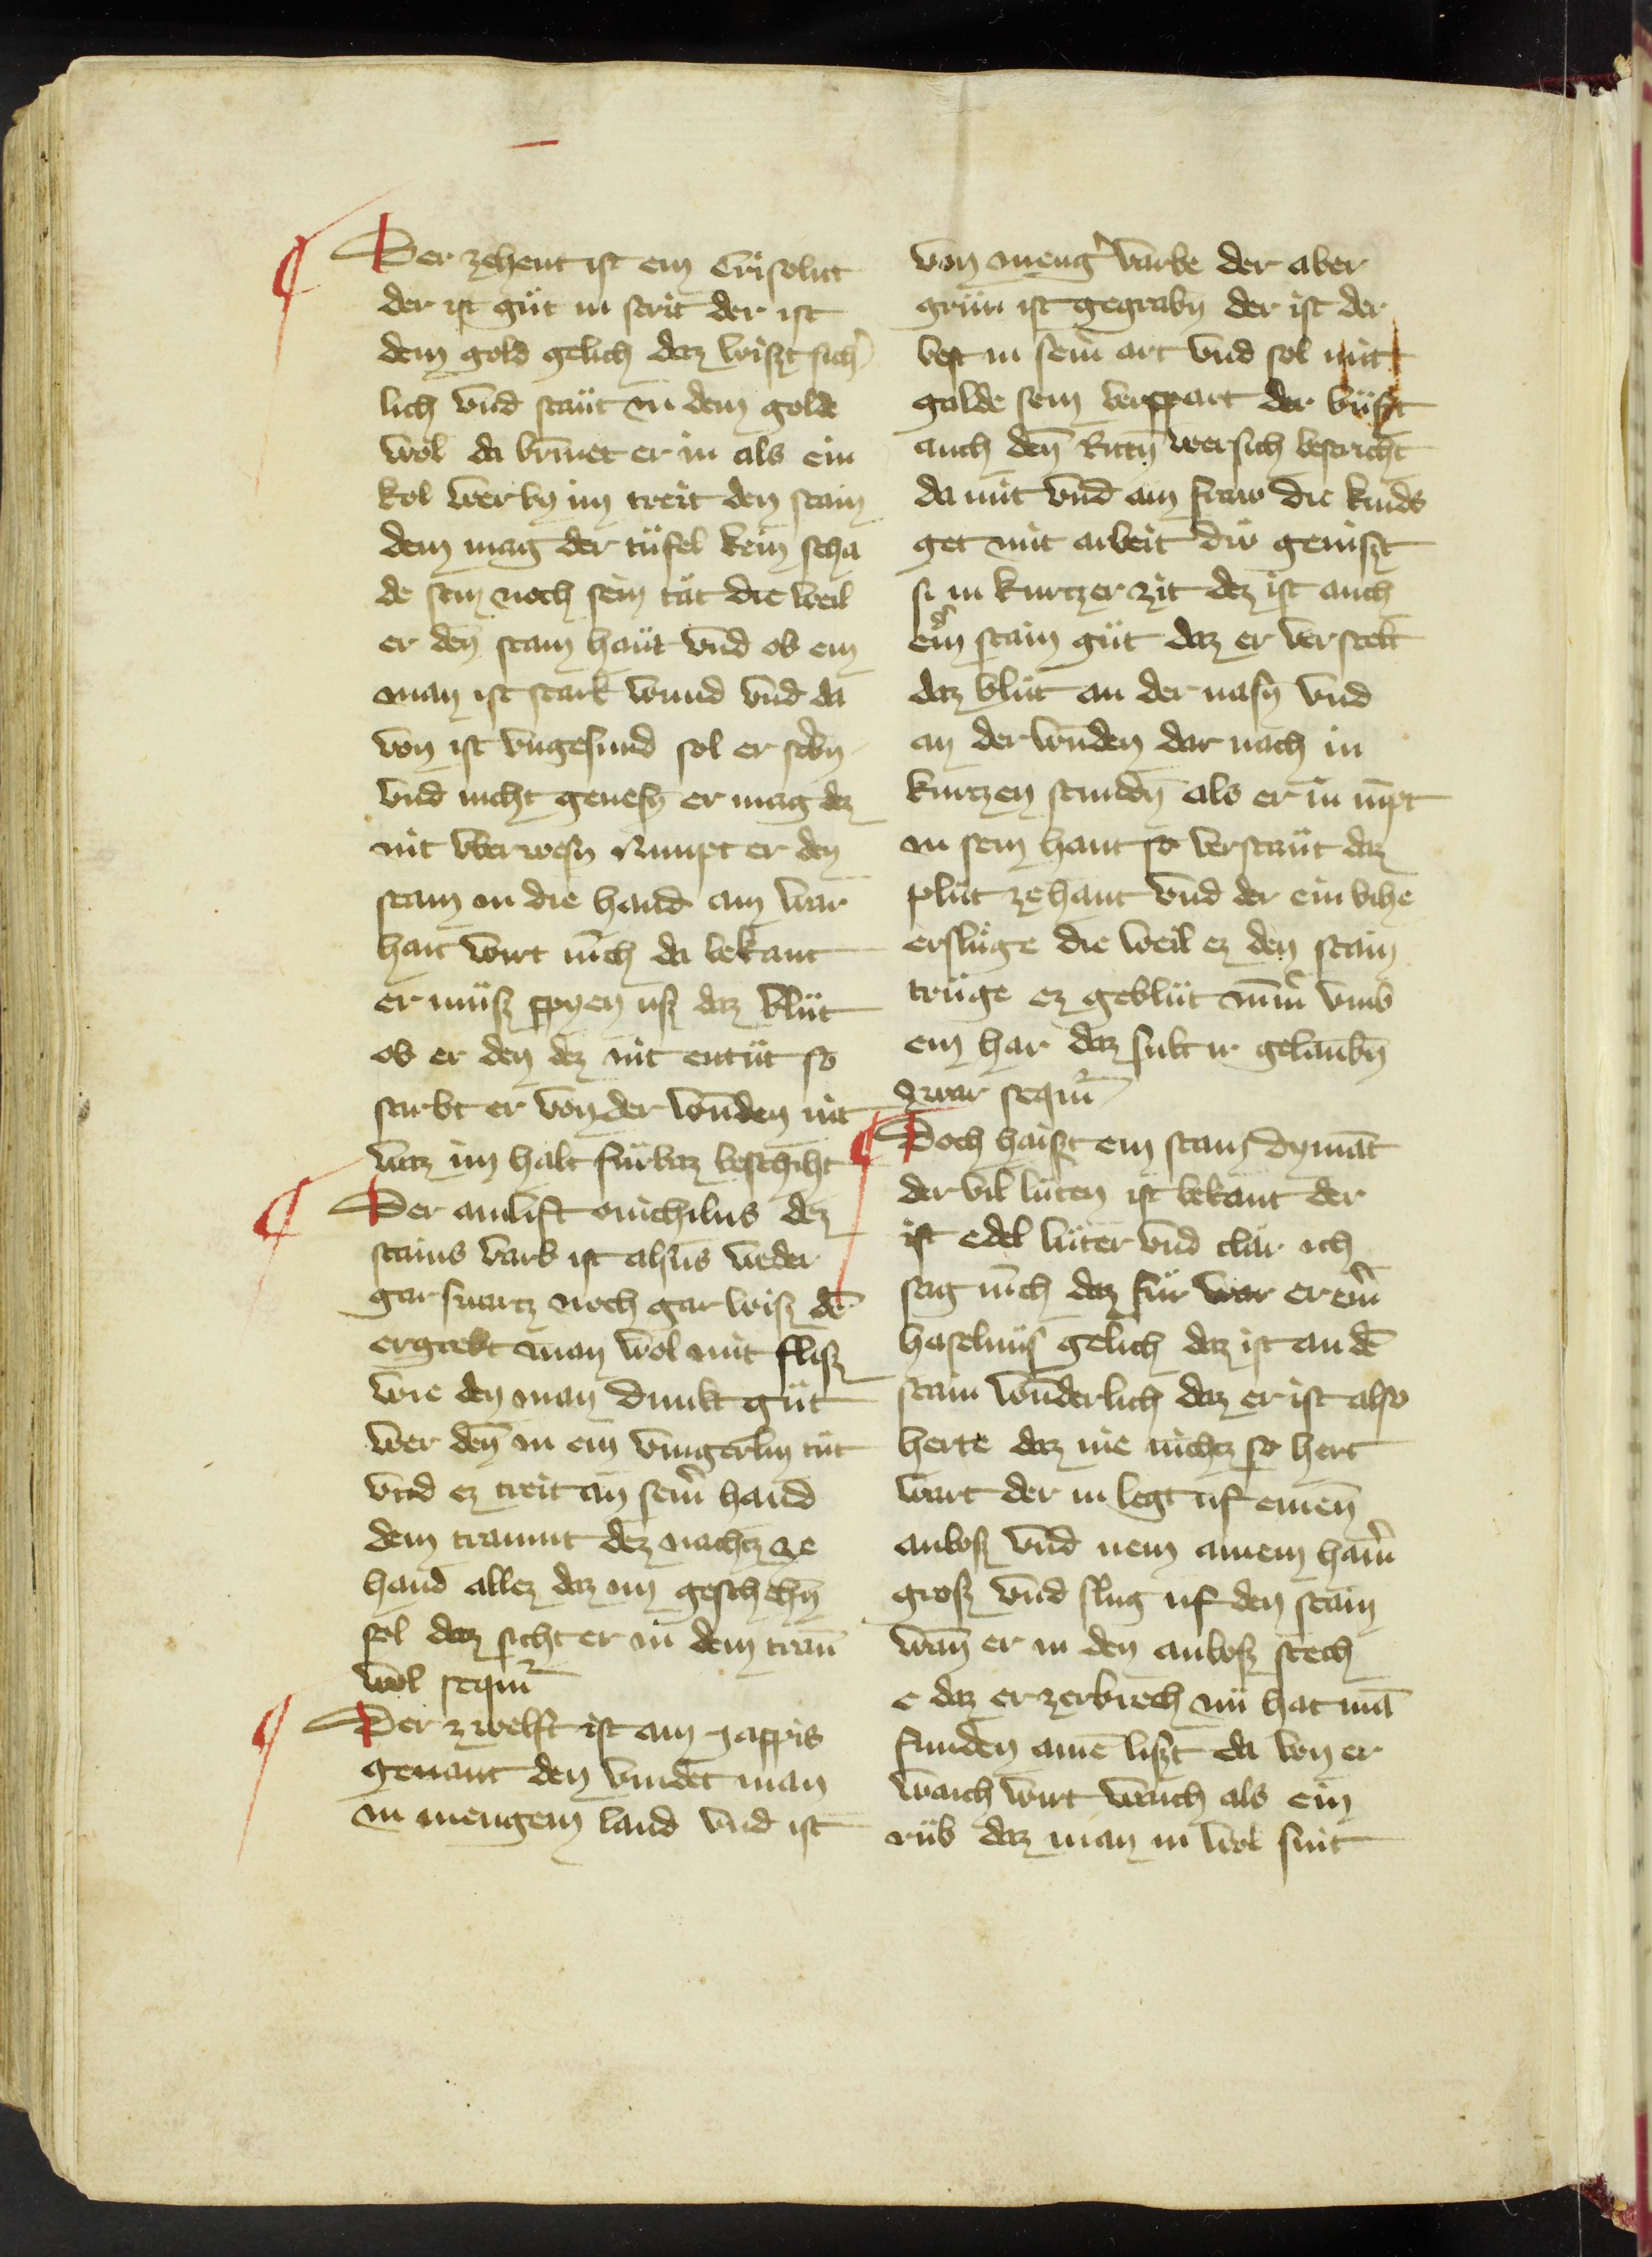 Der zehent ist ein Crisolut
der ist güt in strit der ist
dem gold gelich daz wiszt sich̾
lich vnd staüt in dem golde
wol da brīnet er in als ein
kol wer by im treit den stain
dem mag der tüfel kein scha
de sein noch sein tät die weil
er den̄ stain haüt vnd ob ein
man ist stark wund vnd da
von ist vngesund sol er st̾bn̄
vnd nicht genesn̄ er mag dez
nit vberwesn̄ Nimpt er den
stain in die hand ain war
hait wirt ǖch da bekant
er müsz spyen usz daz blüt
ob er den dez nit entüt so
stirbt er von der wūnden nit
waz im halt fürbaz beschiht
Der ainlift onichilus dez
stains varb ist alsus weder
gar swartz noch gar wisz dē
ergrebt man wol mit flisz
wie den man dunkt güt
wer den̄ in ein vingerlin tüt
vnd ez treit an sein̾ hand
dem traumt dez nachtz ze
hand allez daz im geschehn̄
sol daz sicht er in dem traū
wol sequit᷑
Der zwelft ist ain jaspis
genant den vindet man
in mengem land vnd ist
von meng̾ varbe der aber
grün ist gegrabn̄ der ist der
best in sein̾ art vnd sol mit
golde sein verspart der büszt
auch den̄ Rittn̄ wer sich bestricht
da mit vnd ain fraw die kinds
get mit arbeit diw genist
si in kurtzer zit dez ist auch
ein̾ stain güt daz er verstelt
daz blüt an der nasn̄ vnd
an der wūnden dar nach in
kurtzen stundn̄ als er in nīpt
in sein hant so verstaüt daz
plüt zehant vnd der ein vihe
erslüge die weil ez den stain
trüge ez geblüt nīm̾ vmb
ein har daz sult ir gelaubn̄
zwar sequit᷑
Doch haiszt ein stain dymāt
der vil lüten ist bekant der
ist edel lüter vnd clär ich
sag ǖch daz für war er ein̾
haselnüs gelich daz ist an dē
stain wūnderlich daz er ist also
herte daz nie nichtz so hert
wart der in legt uf einen̄
anbosz vnd nem ainem ham̾
grosz vnd slug uf den stain
wan̄ er in den anbosz stech
e daz er zerbrech nü hat mā
funden ainē liszt da von er
waich wirt waich als ein
rüb daz man in wol snit